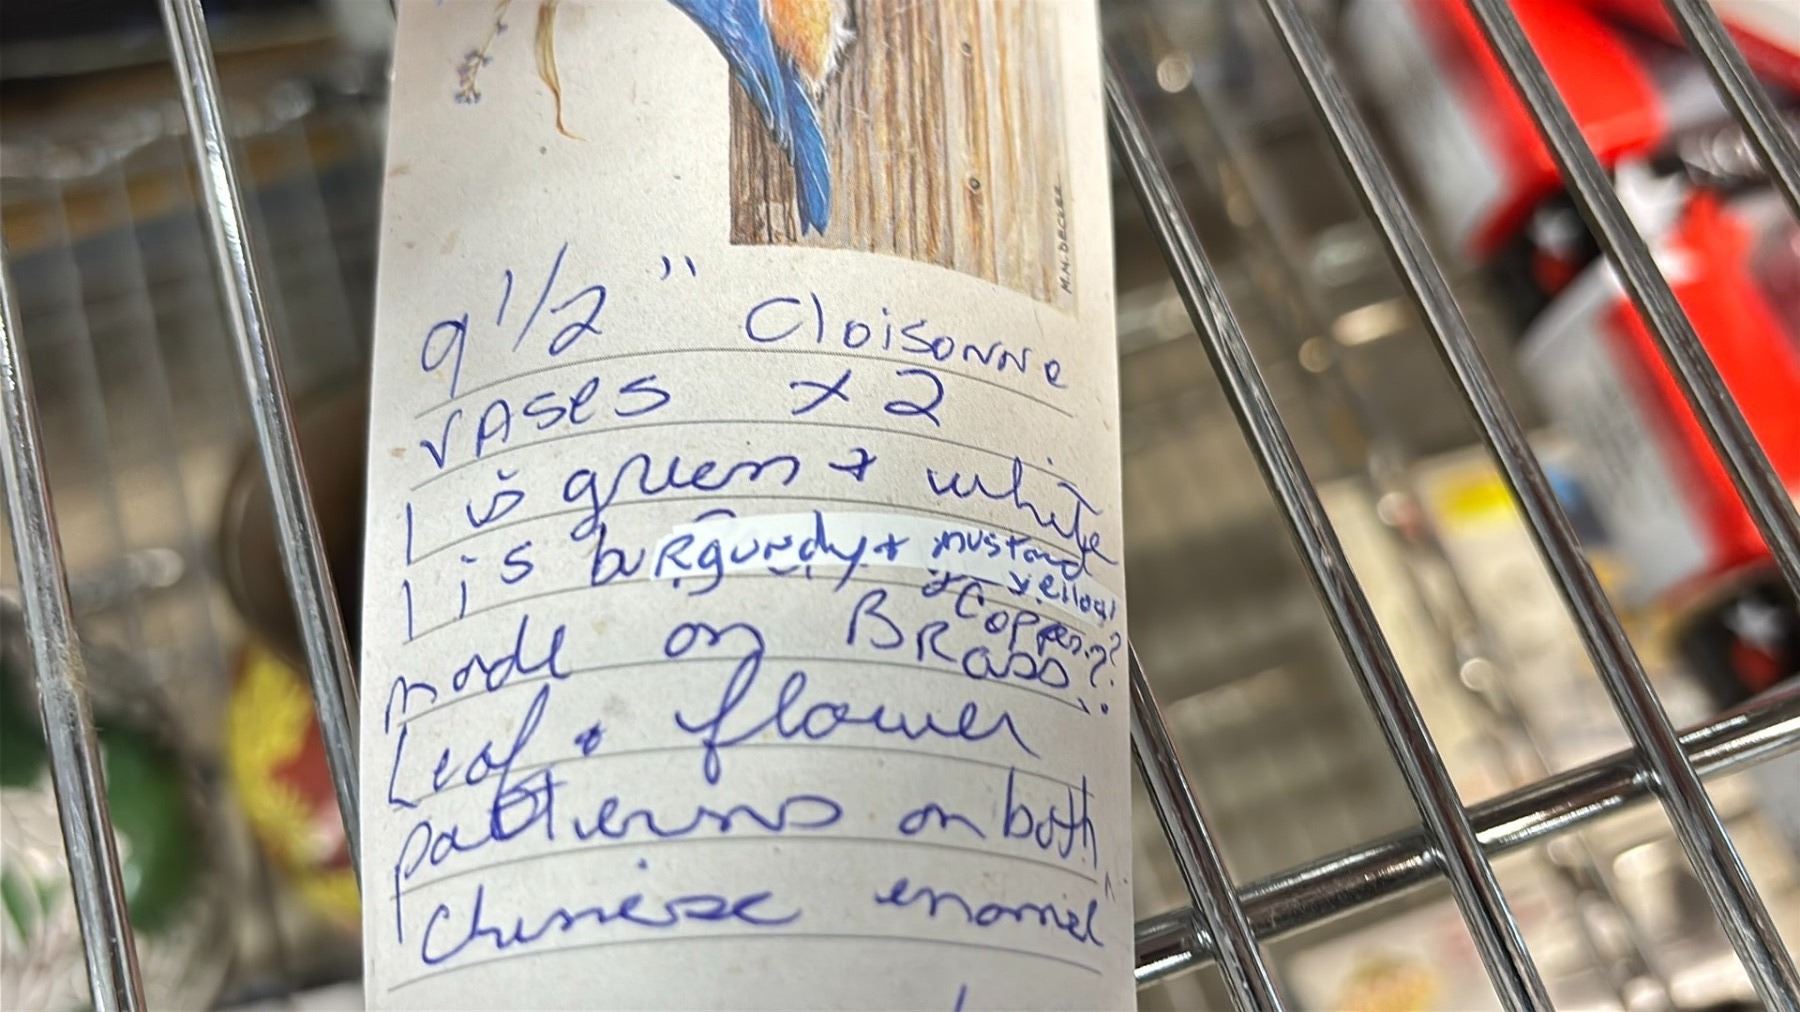 M.M. DECKER
9 1/2 " Cloisonne
VASES x 2
1 is green + white
1 is buRgundy + mustard
+ yellow
Copper?
made on BRass?
Leaf + flower
patterns on both
Chinese enamel